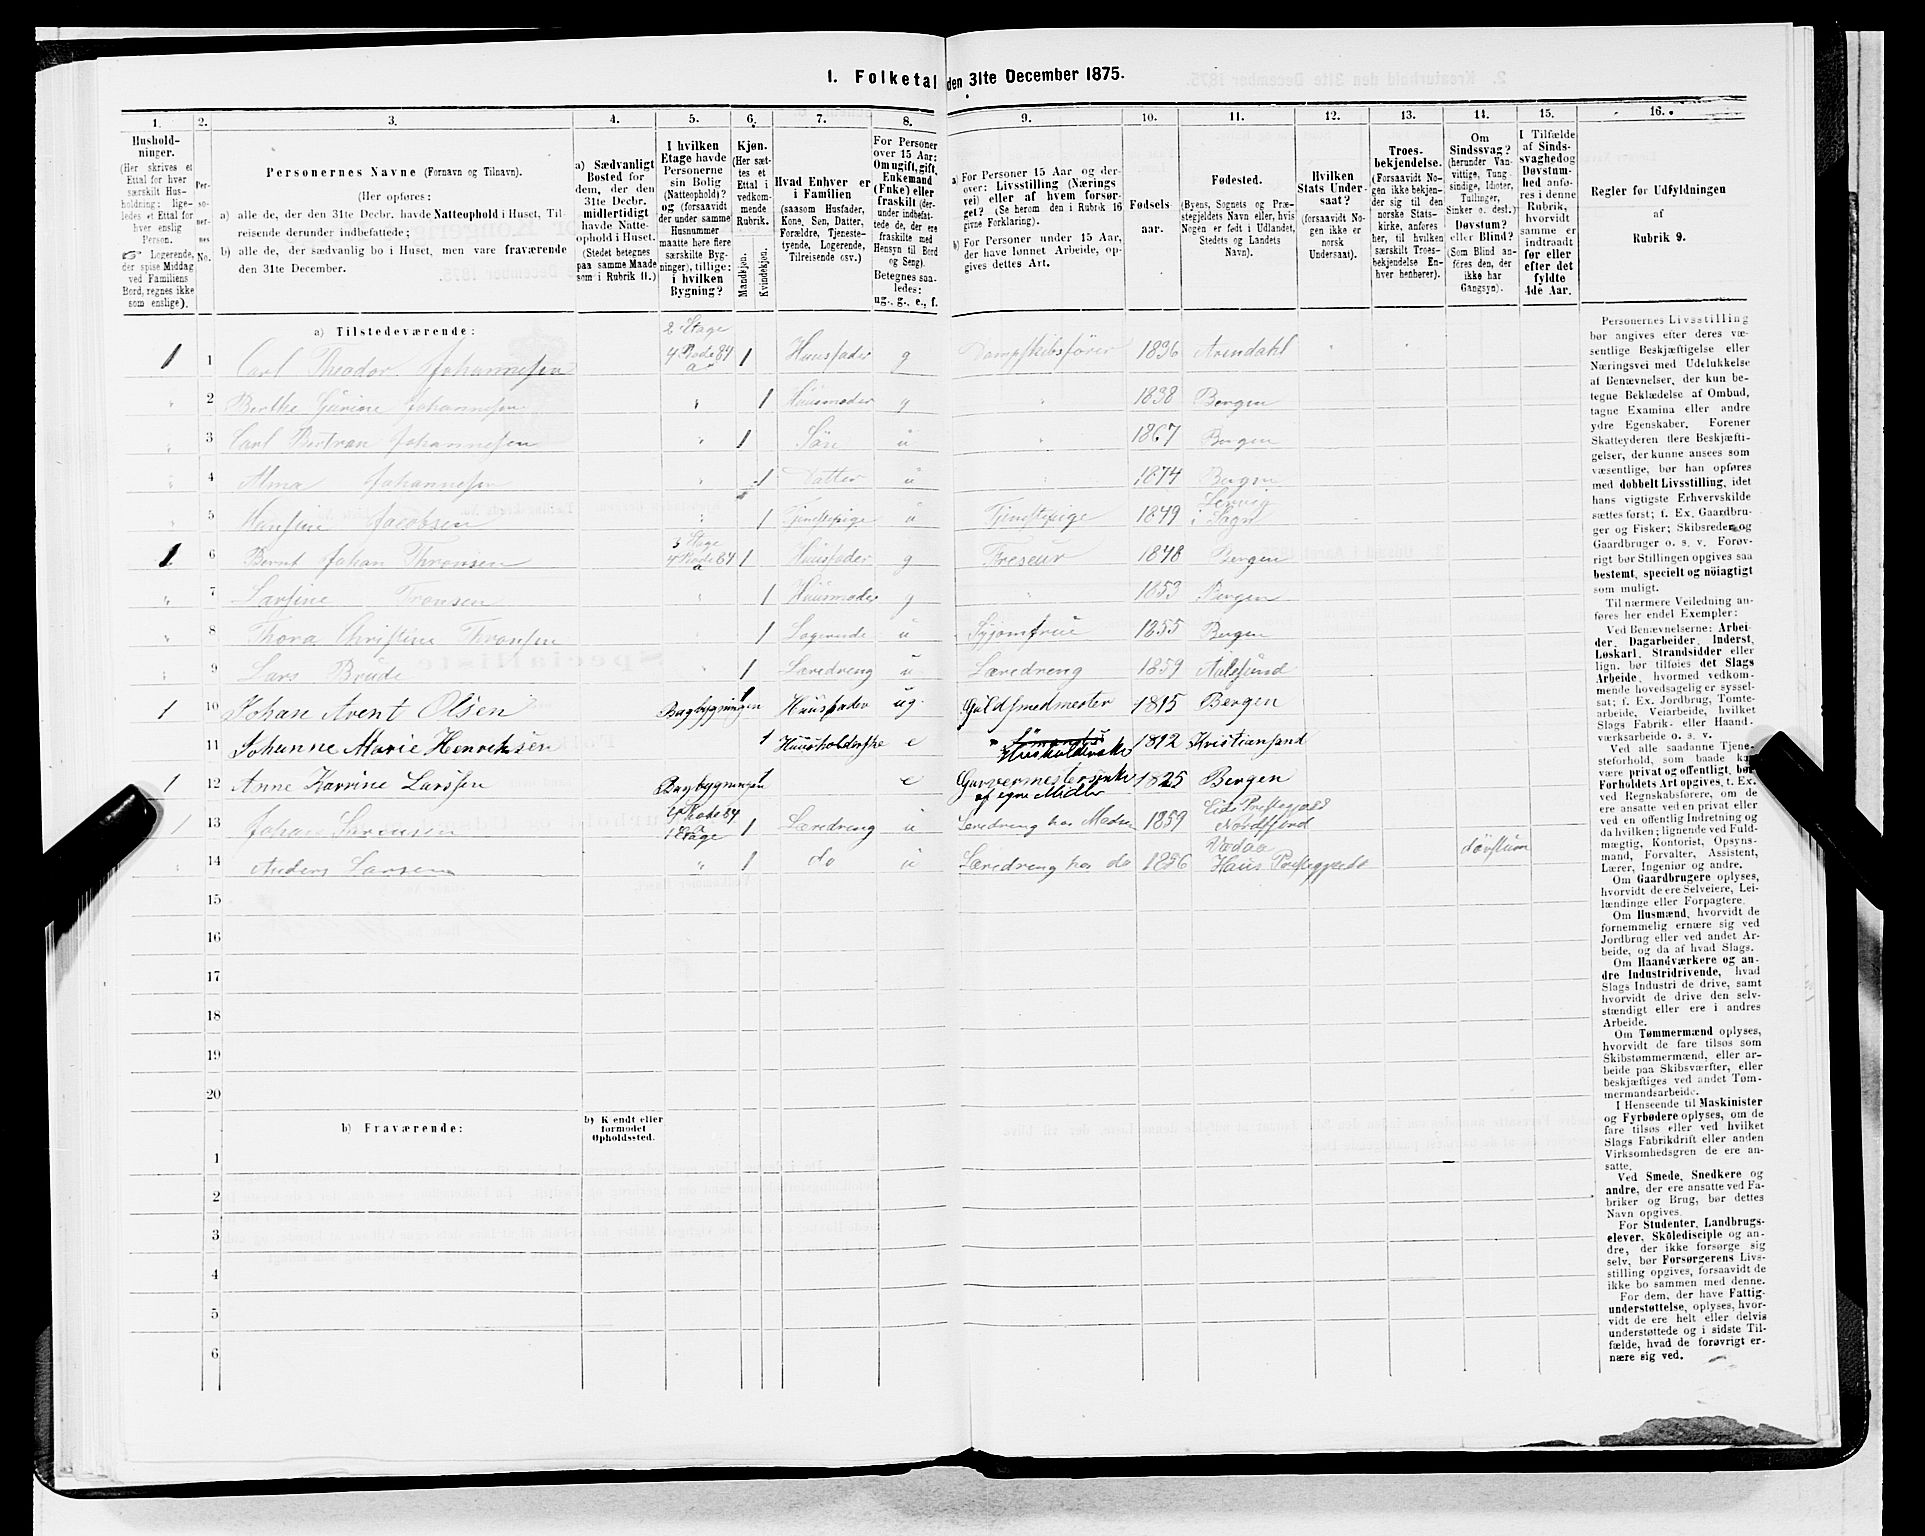 1. Folketal den 31te December 1875.
1. 2. 3. 4. 5. 6. 7. 8. 9. 10. 11. 12. 13. 14. 15. 16.
Hushold-
ninger.
(Her skrives et
Ettal for hver
særskilt Hus-
holdning; lige-
ledes et Ettal for
hver enslig
Person.
Logerende,
der spise Middag
ved Familiens
Bord, regnes ikke
som enslige).
Per-
so-
ner-
nes
No.
Personernes Navne (Fornavn og Tilnavn).
(Her opføres:
a) alle de, der den 31te Decbr. havde Natteophold i Huset, Til-
reisende derunder indbefattede;
b) alle de, der sædvanlig bo i Huset, men vare fraværende
den 31te December.
a) Sædvanligt
Bosted for
dem, der den
31te Decbr.
midlertidigt
havde Natte-
ophold i Huset.
(Stedet betegnes
paa samme Maade
som i Rubrik 11.)
I hvilken
Etage havde
Personerne
sin Bolig
(Natteophold)?
og (forsaavidt
der under samme
Husnummer
maatte høre flere
særskilte Byg-
ninger), tillige:
i hvilken
Bygning?
Kjøn.
(Her sæt-
tes et
Ettal i
vedkom-
mende
Rubrik.
Mandkjøn.
Kvindekjøn.
Hvad Enhver er
i Familien
(saasom Husfader,
Kone, Søn, Datter,
Forældre, Tjeneste-
tyende, Logerende,
Tilreisende osv.)
For Personer
over 15 Aar:
Om ugift, gift,
Enkemand
(Enke) eller
fraskilt (der-
under indbefat-
tede de, der ere
fraskilte med
Hensyn til Bord
og Seng)
Betegnes saa-
ledes:
ug., g., e., f.
a) For Personer 15 Aar og der-
over: Livsstilling (Nærings
vei) eller af hvem forsør-
get? (Se herom den i Rubrik 16
givne Forklaring).
b) For Personer under 15 Aar,
der have lønnet Arbeide, op-
gives dettes Art.
Fødsels-
aar.
Fødested.
(Byens, Sognets og Præ-
stegjeldets Navn eller, hvis
Nogen er født i Udlandet,
Stedets og Landets
Navn).
Hvilken
Stats Under-
saat?
(forsaavidt No-
gen ikke er
norsk
Undersaat).
Troes-
bekjendelse.
(Forsaavidt No-
gen ikke bekjen-
der sig til den
norske Stats-
kirke, anføres
her, til hvilken
særskilt Troes-
bekjendelse En-
hver henhører).
Om
Sindssvag?
(herunder Van-
vittige, Tung
sindige, Idioter,
Tullinger,
Sinker o. desl.)
Døvstum?
eller Blind?
(Som Blind an-
føres den, der
ikke har
Gangsyn).
I Tilfælde
af Sinds-
svaghed og
Døvstum-
hed anfø-
res i denne
Rubrik,
hvorvidt
samme er
indtraadt
før eller
efter det
fyldte
4de Aar.
Regler før Udfyldningen
af
Rubrik 9.
a) Tilstedeværende:
2 Etage
1 1 Carl Theador Johannesen 4 Rode 84 a 1 Huusfader g Dampskibsfører 1836 Arendahl
" 2 Berthe Gurine Johannesen " 1 Huusmoder g " 1838 Bergen
" 3 Carl Bertran Johannesen " 1 Sön u " 1867 Bergen
" 4 Alma Johannesen " 1 Datter u " 1874 Bergen
" 5 Hansine Jacobsen " 1 Tjenstepige u Tjenstepige 1849 i Sogn
3 Etage
1 6 Bernt Johan Thronsen 4 Rode 84 a 1 Huusfader g Freseur 1848 Bergen
" 7 Larsine Tronsen " 1 Huusmoder g " 1853 Bergen
" 8 Thora Christine Thronsen " 1 Logerende u Syjomfrue 1855 Bergen
" 9 Lars Brude " 1 Læredreng u Læredreng 1859 Aalesund
1 10 Johan Arent Olsen Bagbygningen 1 Huusfader ug. Guldsmedmester 1815 Bergen
11 Johanne Marie Henriksen 1 Huusholderske e " Huusholderske 1812 Kristiansand
1 12 Anne Karrine Larssen Bagbygningen 1 e Garvermestersenke af egne Midler 1825 Bergen
1 13 Johan Sørensen 4 Rode 84 a 1 Etage 1 Læredreng u Læredreng hos 1859 Eids Prestegjæld Nordfjord
" 14 Anders Larsen " 1 do u Læredreng hos do 1856 Haus Prestegjæld døvstum
15
16
17
18
19
20
b) Fraværende:
b) Kjendt eller
formodet
Opholdssted.
1
2
3
4
5
6
Personernes Livsstilling
bør angives efter deres væ-
sentlige Beskjæftigelse eller
Næringsvei med Udelukkelse
af Benævnelser, der kun be-
tegne Beklædelse af Ombud,
tagne Examina eller andre
ydre Egenskaber. Forener
Skatteyderen flere Beskjæfti-
gelser, der kunne ansees som
væsentlige, bør han opføres
med dobbelt Livsstilling, idet
hans vigtigste Erhvervskilde
sættes først; f. Ex. Gaardbru-
ger og Fisker; Skibsreder og
Gaardbruger o. s. v. Forøv-
rigt bør Stillingen opgives saa
bestemt, specielt og nöiagtigt
som muligt.
Til nærmere Veiledning an-
føres her endel Exempler:
Ved Benævnelserne: Arbei-
der, Dagarbeider, Inderst,
Løskarl, Strandsidder eller
lign. bør tilføies det Slags
Arbeide, hvormed vedkom-
mende hovedsagelig er syssel-
sat; f. Ex. Jordbrug, Tomte-
arbeide, Veiarbeide, hvilket
Slags Fabrik- eller Haand-
værksarbeide o. s. v.
Ved alle saadanne Tjene-
steforhold, som baade kan
være privat og offentligt, bør
Forholdets Art opgives, f. Ex.
ved Regnskabsførere, om de
ere ansatte ved en privat eller
ved en offentlig Indretning og
da hvilken; lignende ved Fuld-
mægtig, Kontorist, Opsyns-
mand, Forvalter, Assistent,
Lærer, Ingeniør og andre.
Om Gaardbrugere oplyses,
hvorvidt de ere Selveiere, Lei-
lændinge eller Forpagtere.
Om Husmænd, hvorvidt de
fornemmelig ernære sig ved
Jordbrug eller ved andet Ar-
beide, og da af hvad Slags.
Om Haandværkere og an-
dre Industridrivende, hvad
Slags Industri de drive, samt
hvorvidt de drive den selv-
stændigt eller ere i andres
Arbeide.
Om Tømmermænd oplyses,
hvorvidt de fare tilsøs som
Skibstømmermænd, eller ar-
beide paa Skibsværfter, eller
beskjæftiges ved andet Tøm-
mermandsarbeide.
I Henseende til Maskinister
og Fyrbødere oplyses, om de
fare tilsøs eller ved hvilket
Slags Fabrikdrift eller anden
Virksomhedsgren de ere an-
satte.
Ved Smede, Snedkere og
andre, der ere ansatte ved Fa-
briker og Brug, bør dettes
Navn opgives.
For Studenter, Landbrugs-
elever, Skoledisciple og an-
dre, der ikke forsørge sig
selv, bør Forsørgerens Livs-
stilling opgives, forsaavidt de
ikke bo sammen med denne.
For dem, der have Fattig-
understøttelse, oplyses, hvor-
vidt de ere helt eller delvis
understøttede og i sidste Til-
fælde, hvad de forøvrigt er-
nære sig ved.